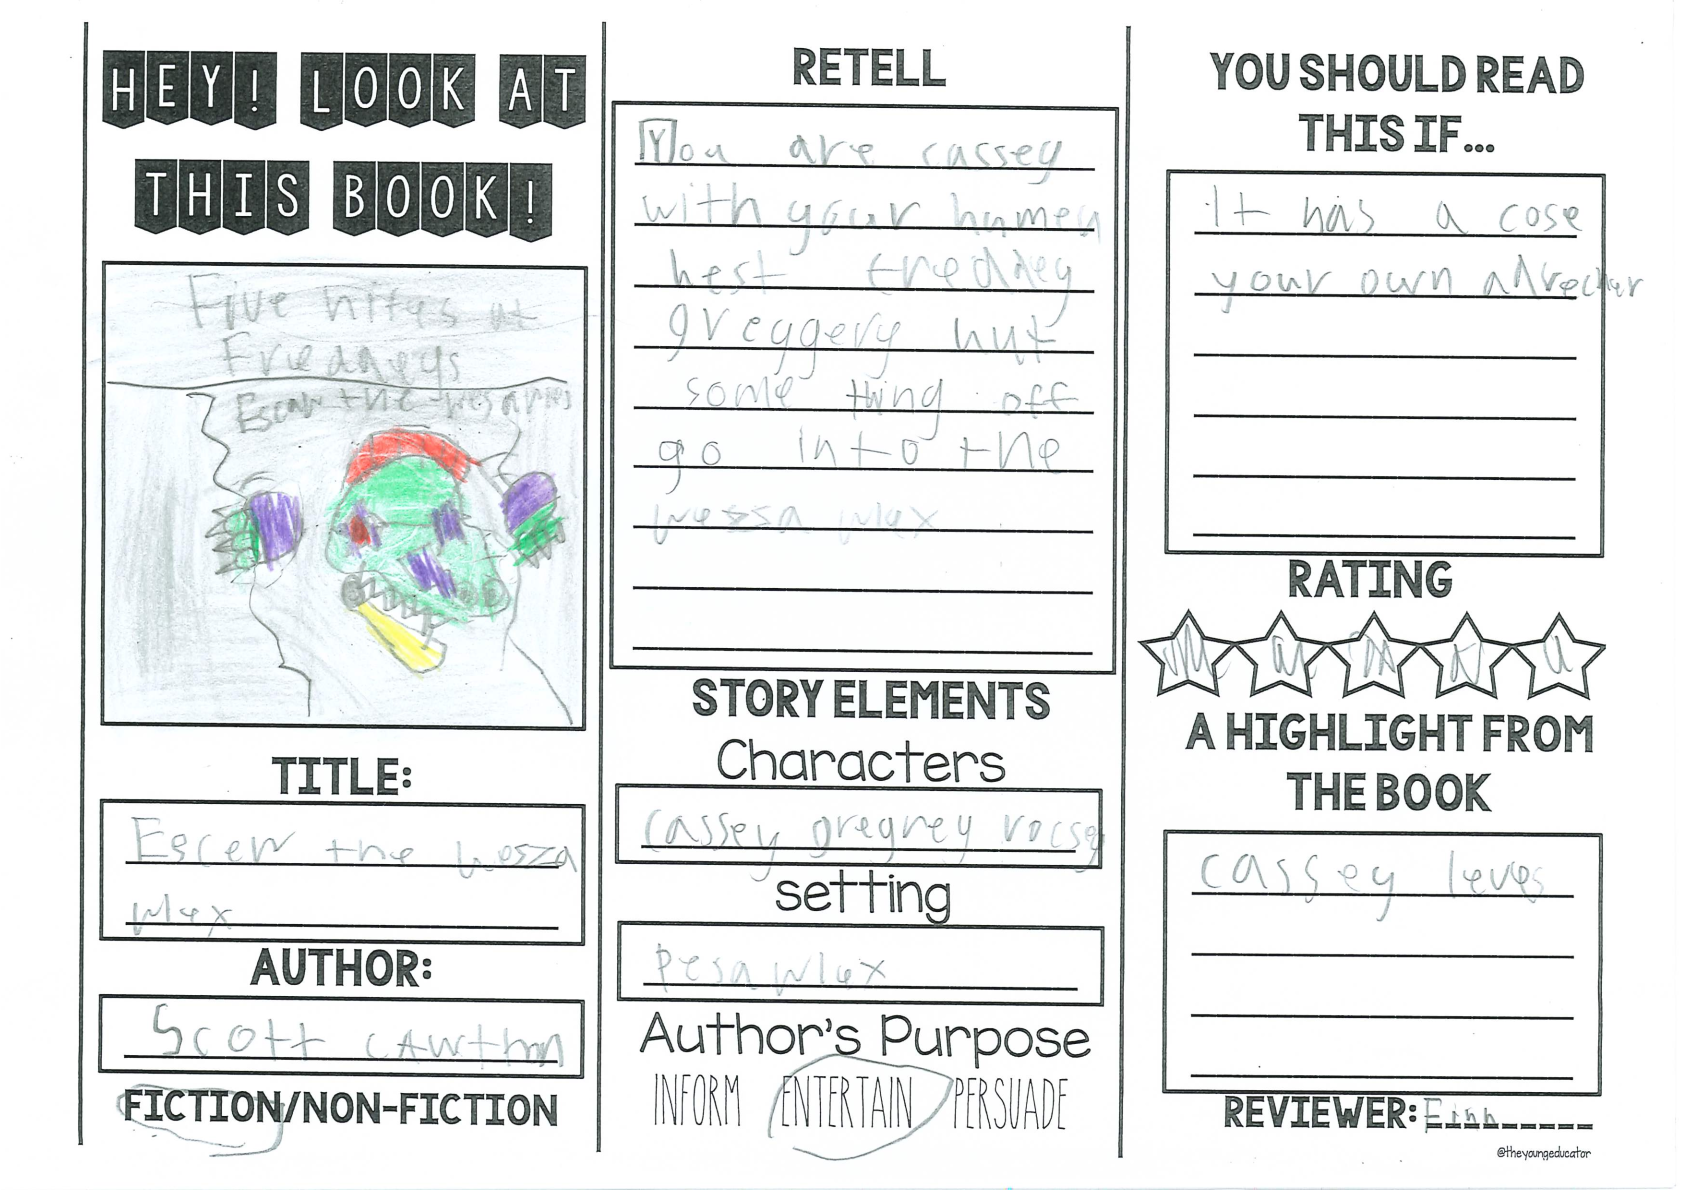 HEY! LOOK AT
THIS BOOK!
Five nites at
Frieddeys
Escaw the
TITLE:
Escew the wesza
wlex
AUTHOR:
Scott cawthon
FICTION/NON-FICTION
RETELL
You are cassey
with your humen
hest freddey
greggery hut
some thing off
go into the
wessa wlex
STORY ELEMENTS
Characters
cassey gregrey rocsey
setting
pesa wlex
Author's Purpose
INFORM ENTERTAIN PERSUADE
YOU SHOULD READ
THIS IF...
It has a cose
your own
RATING
A HIGHLIGHT FROM
THE BOOK
cassey leves
REVIEWER: Finn
@theyoungeducator